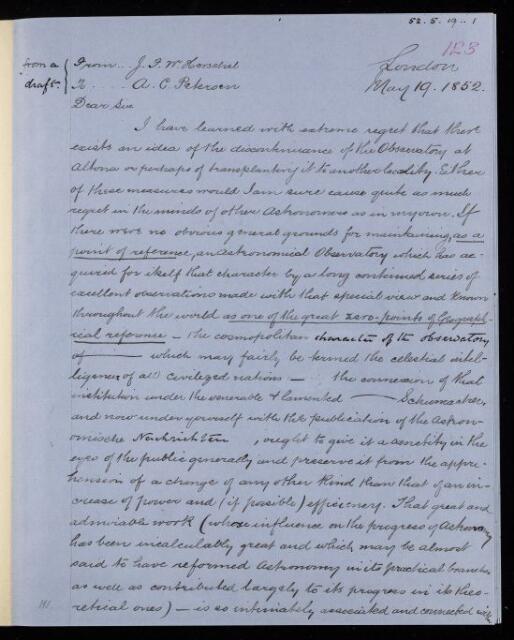 52.5.19..1
123
from a draft.
From .. J. F. W. Herschel
London
To .... A. C. Petersen
May 19. 1852.
Dear Sir
I have learned with extreme regret that there
exists an idea of the discontinuance of the Observatory at
Altona or perhaps of transplanting it to another locality. Either
of these measures would I am sure cause quite as much
regret in the minds of other Astronomers as in my own. If
there were no obvious general grounds for maintaining, as a
point of reference, an Astronomical Observatory which has ac-
quired for itself that character by a long continued series of
excellent observations made with that special view and known
throughout the world as one of the great zero-points of Geograph-
ical reference — the cosmopolitan character of the observatory
of ——— which may fairly be termed the celestial intel-
ligencer of all civilized nations — the connexion of that
institution under the venerable & lamented ——— Schumacher,
and now under yourself with the publication of the Astron-
omische Nachrichten , ought to give it a sanctity in the
eyes of the public generally and preserve it from the appre-
hension of a change of any other kind than that of an in-
crease of power and (if possible) efficiency. That great and
admirable work (whose influence on the progress of Astronomy
has been incalculably great and which may be almost
said to have reformed Astronomy in its practical branches
as well as contributed largely to its progress in its theo-
retical ones) — is so intimately associated and connected with